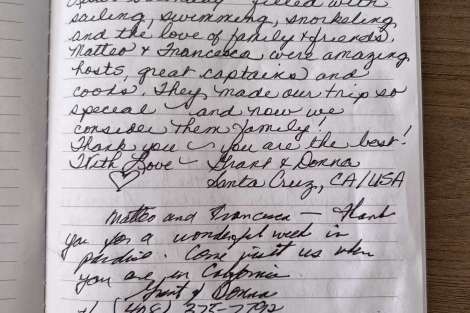 filled with
sailing, swimming, snorkeling
and the love of family & friends.
Matteo & Francesca were amazing
hosts, great captains and
cooks. They made our trip so
special - and now we
consider them family!
Thank you - you are the best!
With Love - Grant & Donna
Santa Cruz, CA/USA
Matteo and Francesca — Thank
you for a wonderful week in
paradise. Come visit us when
you are in California
Grant & Donna